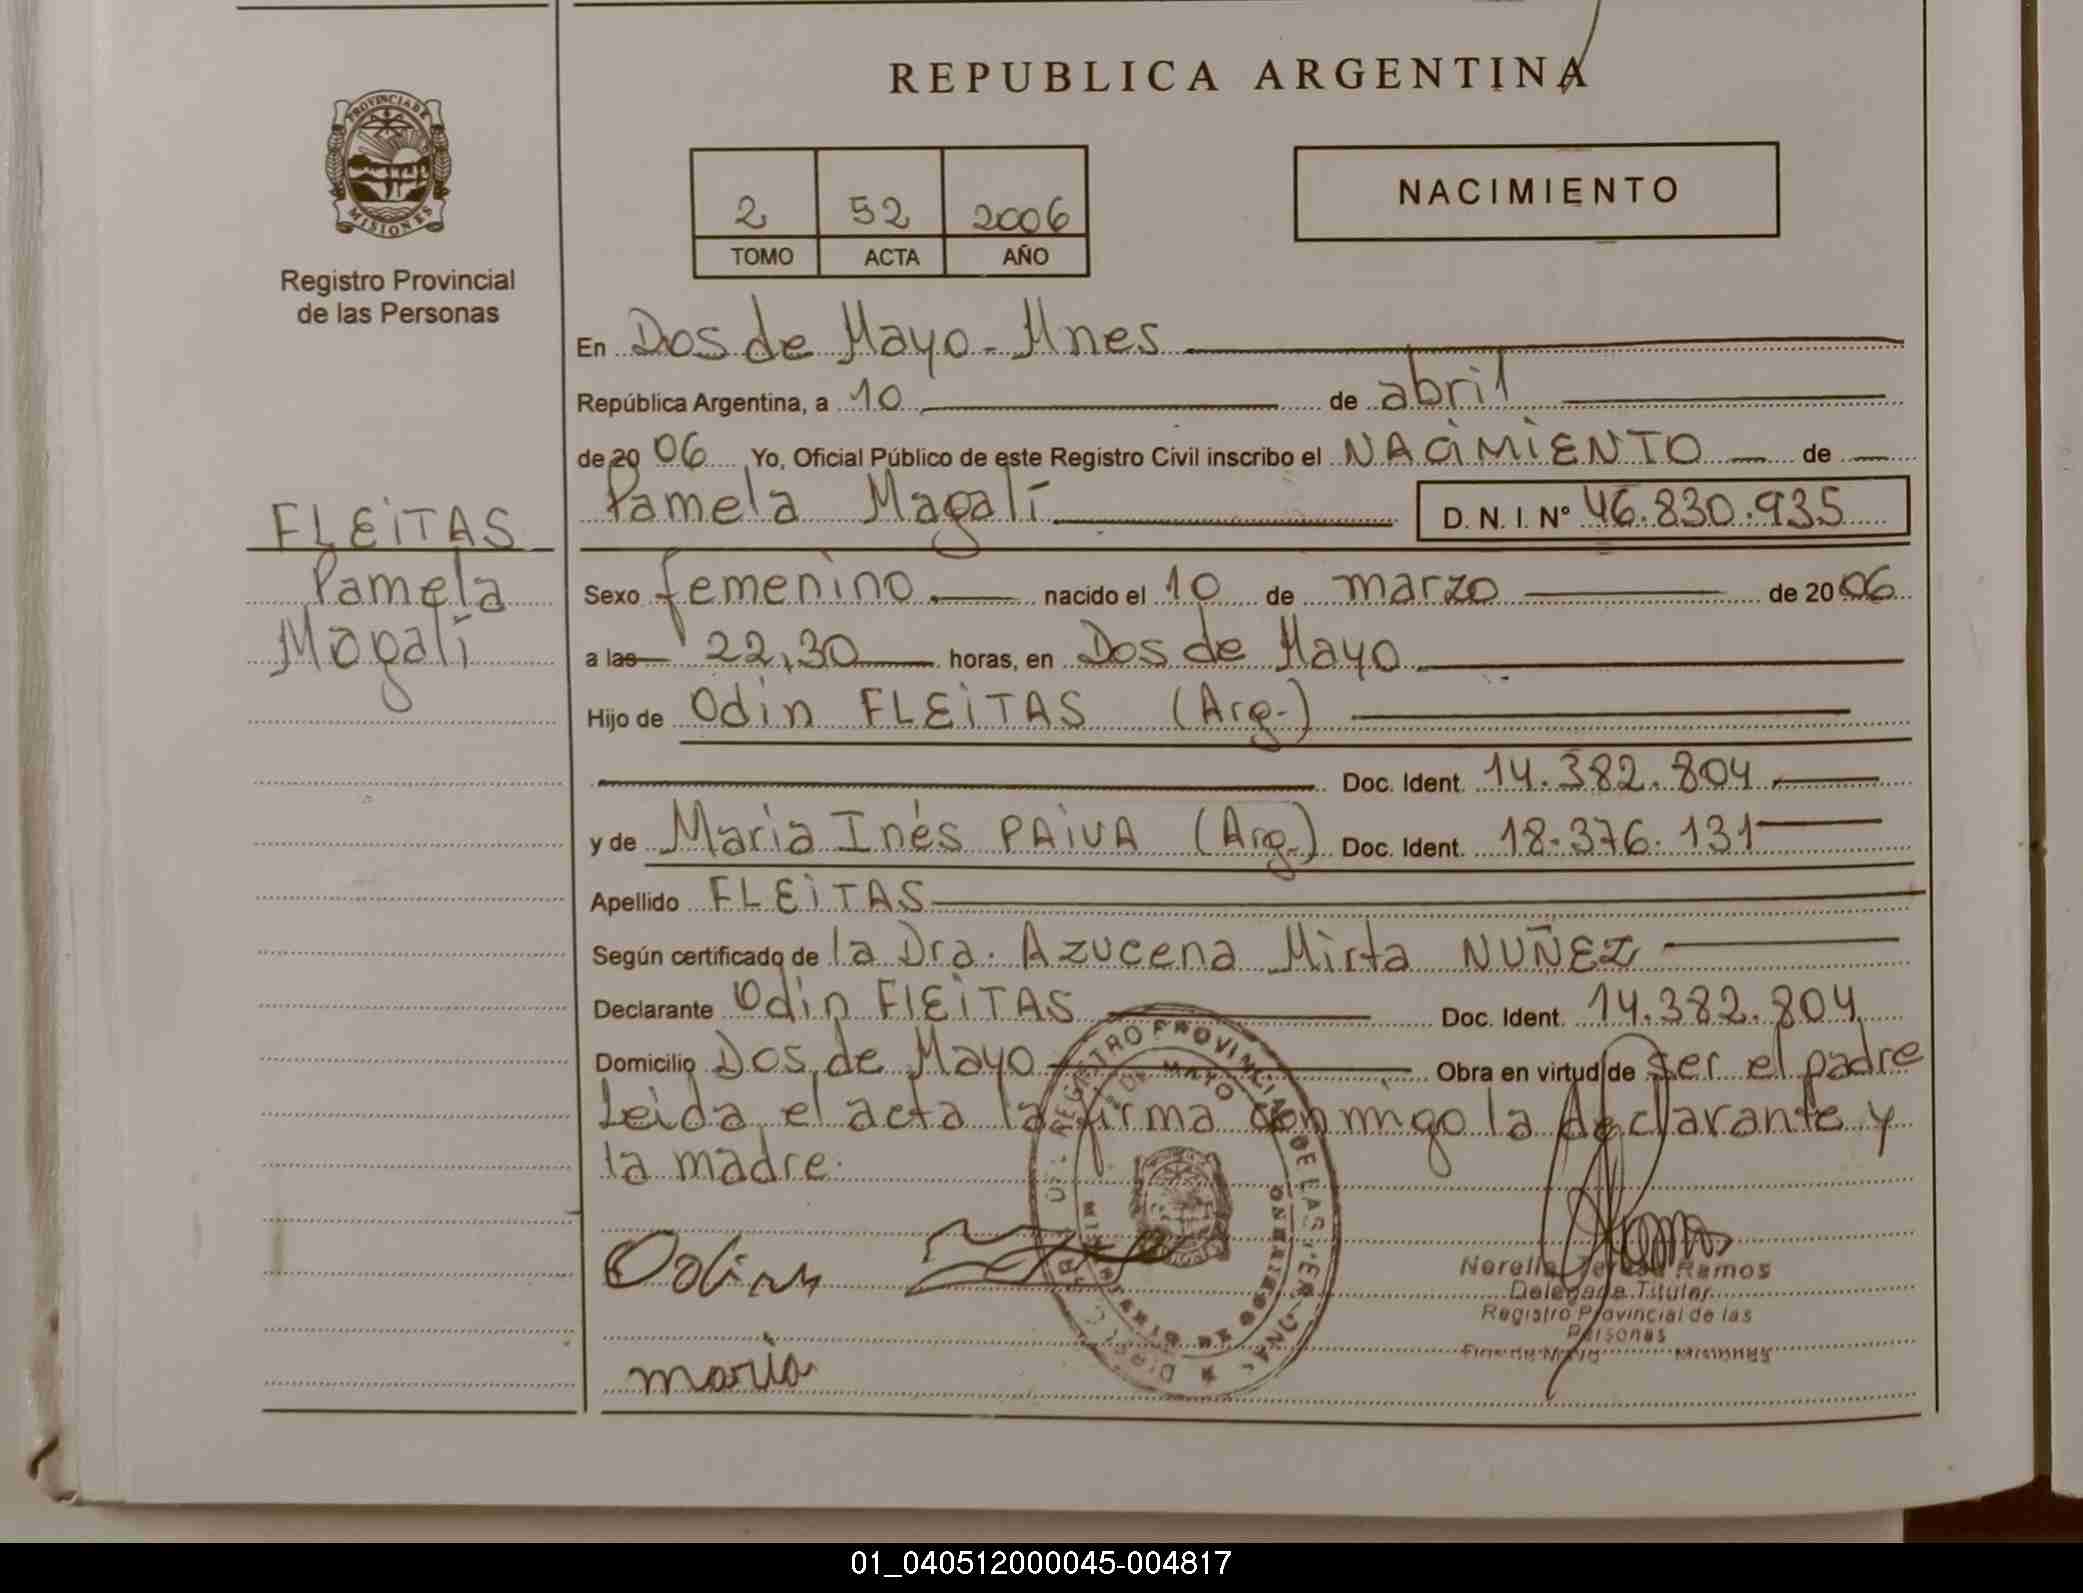 REPUBLICA ARGENTINA
PROVINCIA DE
MISIONES
Registro Provincial
de las Personas
2 52 2006
TOMO ACTA AÑO
NACIMIENTO
En Dos de Mayo - Mnes
República Argentina, a 10 de abril
de 2006 Yo, Oficial Público de este Registro Civil inscribo el NACIMIENTO de
Pamela Magalí D. N. I. Nº 46.830.935
FLEITAS
Pamela
Magalí
Sexo femenino nacido el 10 de marzo de 2006
a las 22,30 horas, en Dos de Mayo
Hijo de Odin FLEITAS (Arg.)
Doc. Ident. 14.382.804
y de Maria Inés PAIVA (Arg.) Doc. Ident. 18.376.131
Apellido FLEITAS
Según certificado de la Dra. Azucena Mirta NUÑEZ
Declarante Odin FlEITAS Doc. Ident. 14.382.804
Domicilio Dos de Mayo Obra en virtud de ser el padre
Leida el acta la firma conmigo la declarante y
la madre.
REGISTRO PROVINCIAL DE LAS PERSONAS
DE MAYO
Odin
Norelia Teresa Ramos
Delegada Titular
Registro Provincial de las
Personas
Dos de Mayo Misiones
maria
01_040512000045-004817